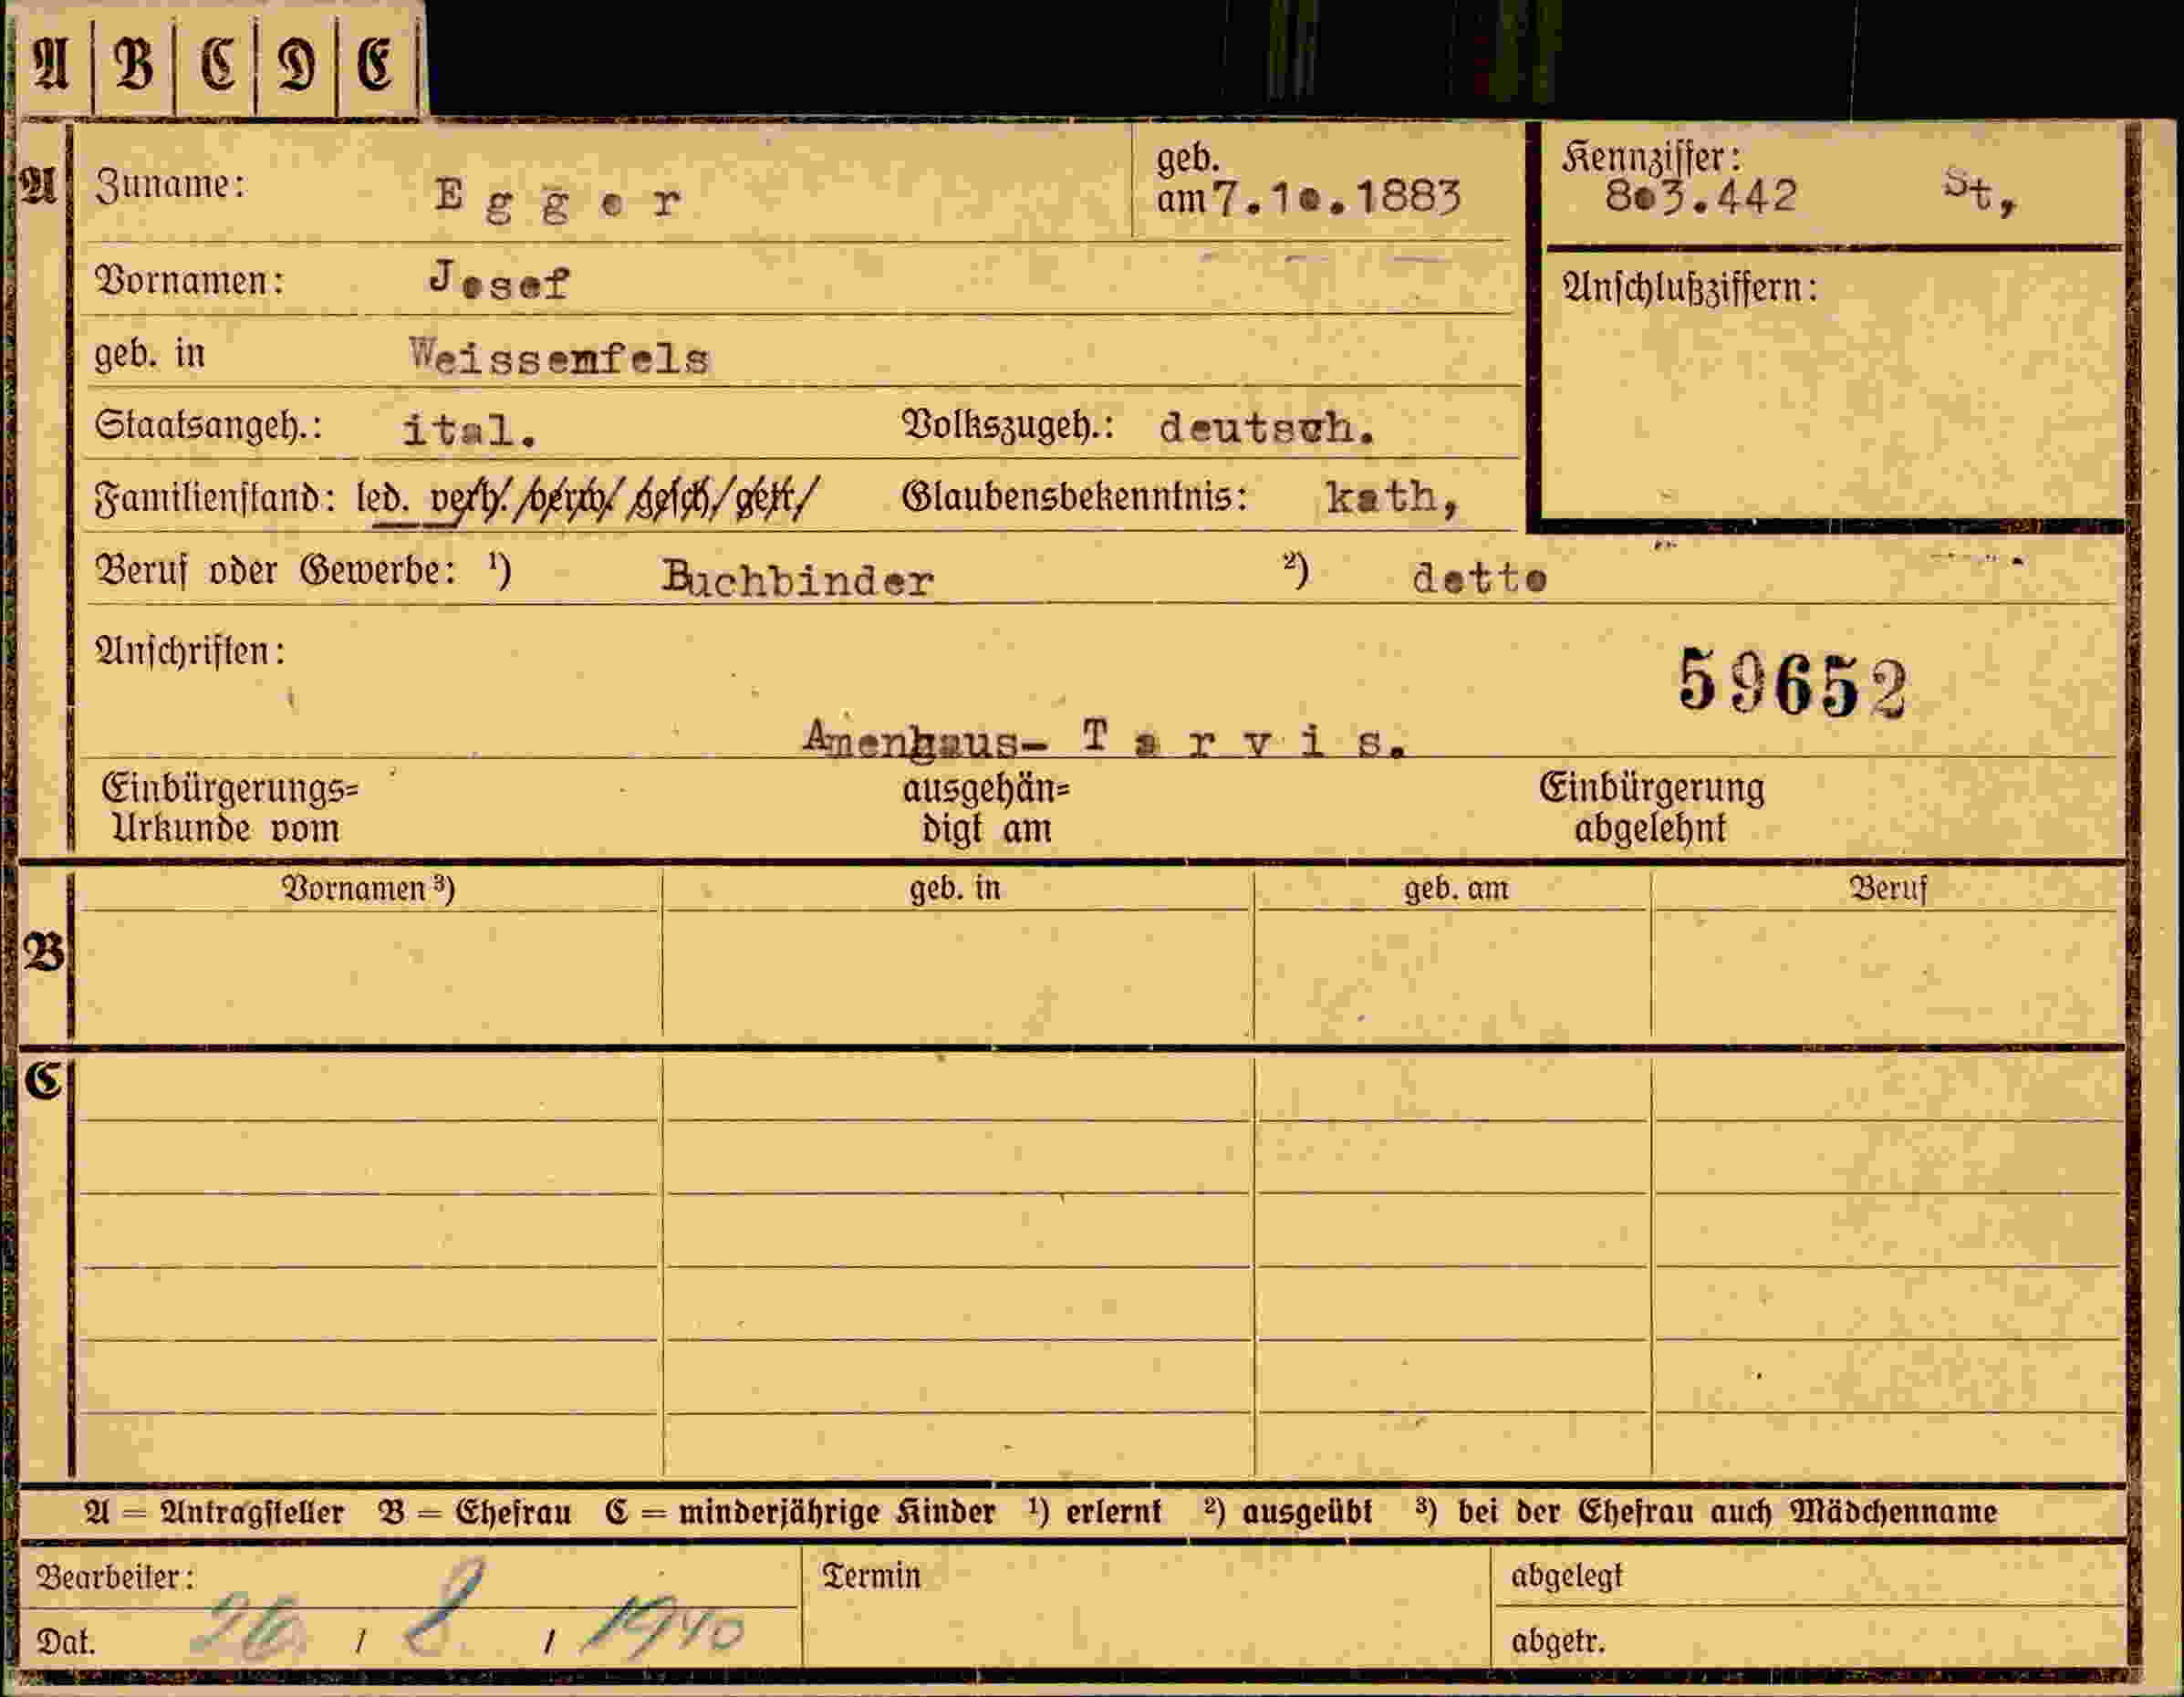 A | B | C | D | E
A
Zuname: Egger
geb. am 7.10.1883
Kennziffer: 803.442 St,
Vornamen: Josef
Anschlußziffern:
geb. in Weissenfels
Staatsangeh.: ital. Volkszugeh.: deutsch.
Familienstand: led. verh. verw. gesch. getr. Glaubensbekenntnis: kath,
Beruf oder Gewerbe: ¹) Buchbinder ²) detto
Anschriften:
59652
Amenhaus- Tarvis.
Einbürgerungs= ausgehän= Einbürgerung
Urkunde vom digt am abgelehnt
Vornamen ³) geb. in geb. am Beruf
B
C
A = Antragsteller B = Ehefrau C = minderjährige Kinder ¹) erlernt ²) ausgeübt ³) bei der Ehefrau auch Mädchenname
Bearbeiter: Termin abgelegt
Dat. 26 / 8. / 1940 abgetr.